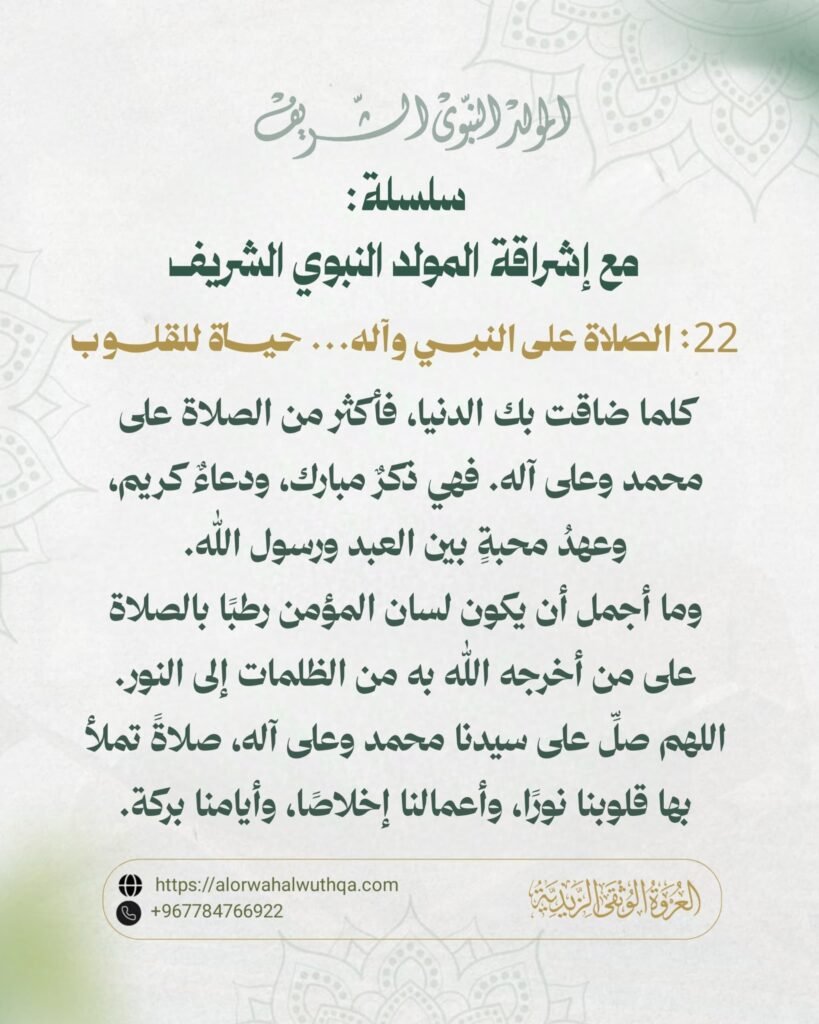 المولد النبوي الشريف
سلسلة:
مع إشراقة المولد النبوي الشريف
22: الصلاة على النبي وآله... حياة للقلوب
كلما ضاقت بك الدنيا، فأكثر من الصلاة على
محمد وعلى آله. فهي ذكرٌ مبارك، ودعاءٌ كريم،
وعهدُ محبةٍ بين العبد ورسول الله.
وما أجمل أن يكون لسان المؤمن رطبًا بالصلاة
على من أخرجه الله به من الظلمات إلى النور.
اللهم صلِّ على سيدنا محمد وعلى آله، صلاةً تملأ
بها قلوبنا نورًا، وأعمالنا إخلاصًا، وأيامنا بركة.
العُرْوَةُ الوُثْقَى الزَّيْدِيَّةُ
https://alorwahalwuthqa.com
+967784766922